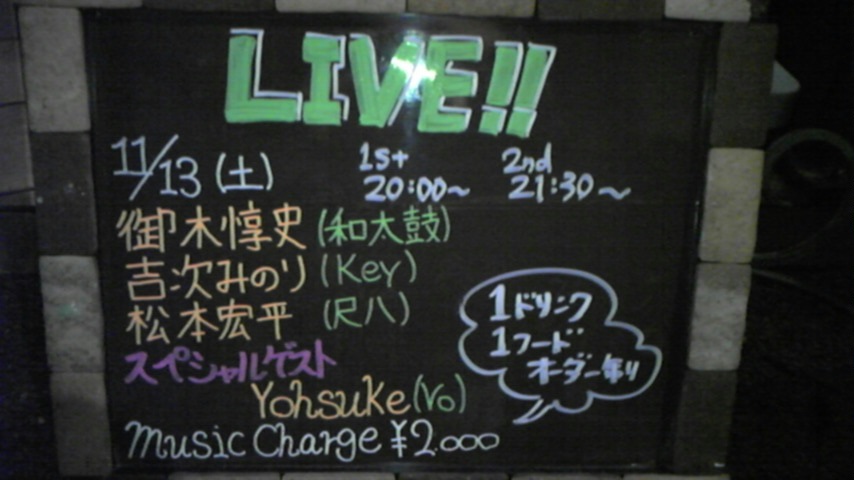 LIVE!!
11/13 (土) 1st 20:00~ 2nd 21:30~
御木惇史 (和太鼓)
吉次みのり (Key)
松本宏平 (尺八)
スペシャルゲスト
Yohsuke (Vo)
1ドリンク
1フード
オーダー有り
Music Charge ¥2.000